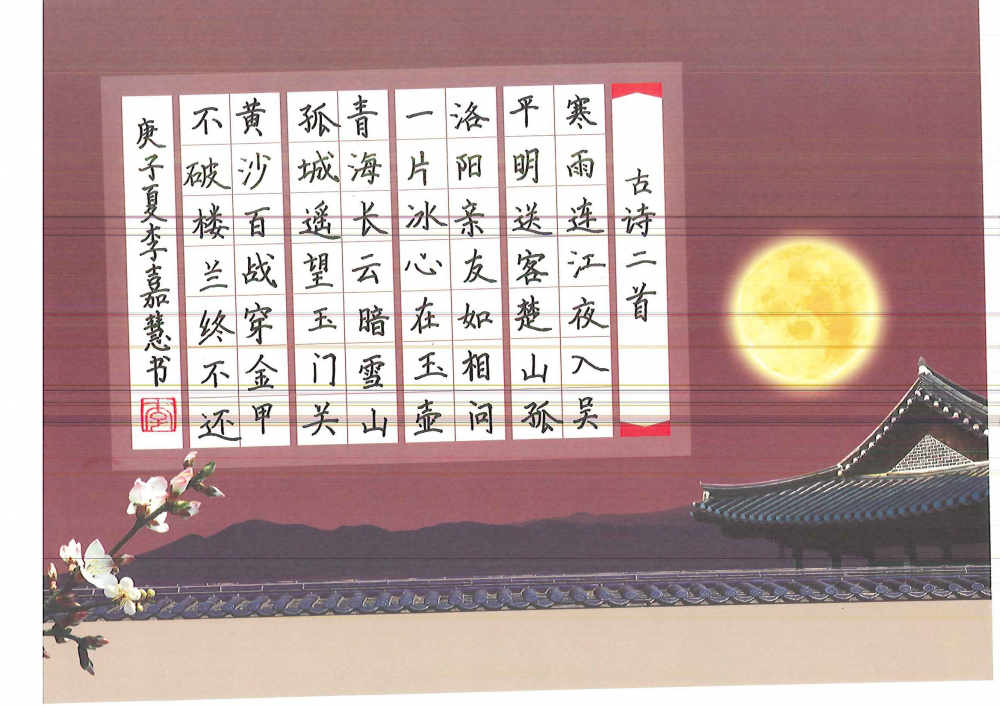 古诗二首
寒雨连江夜入吴
平明送客楚山孤
洛阳亲友如相问
一片冰心在玉壶
青海长云暗雪山
孤城遥望玉门关
黄沙百战穿金甲
不破楼兰终不还
庚子夏李嘉慧书
李